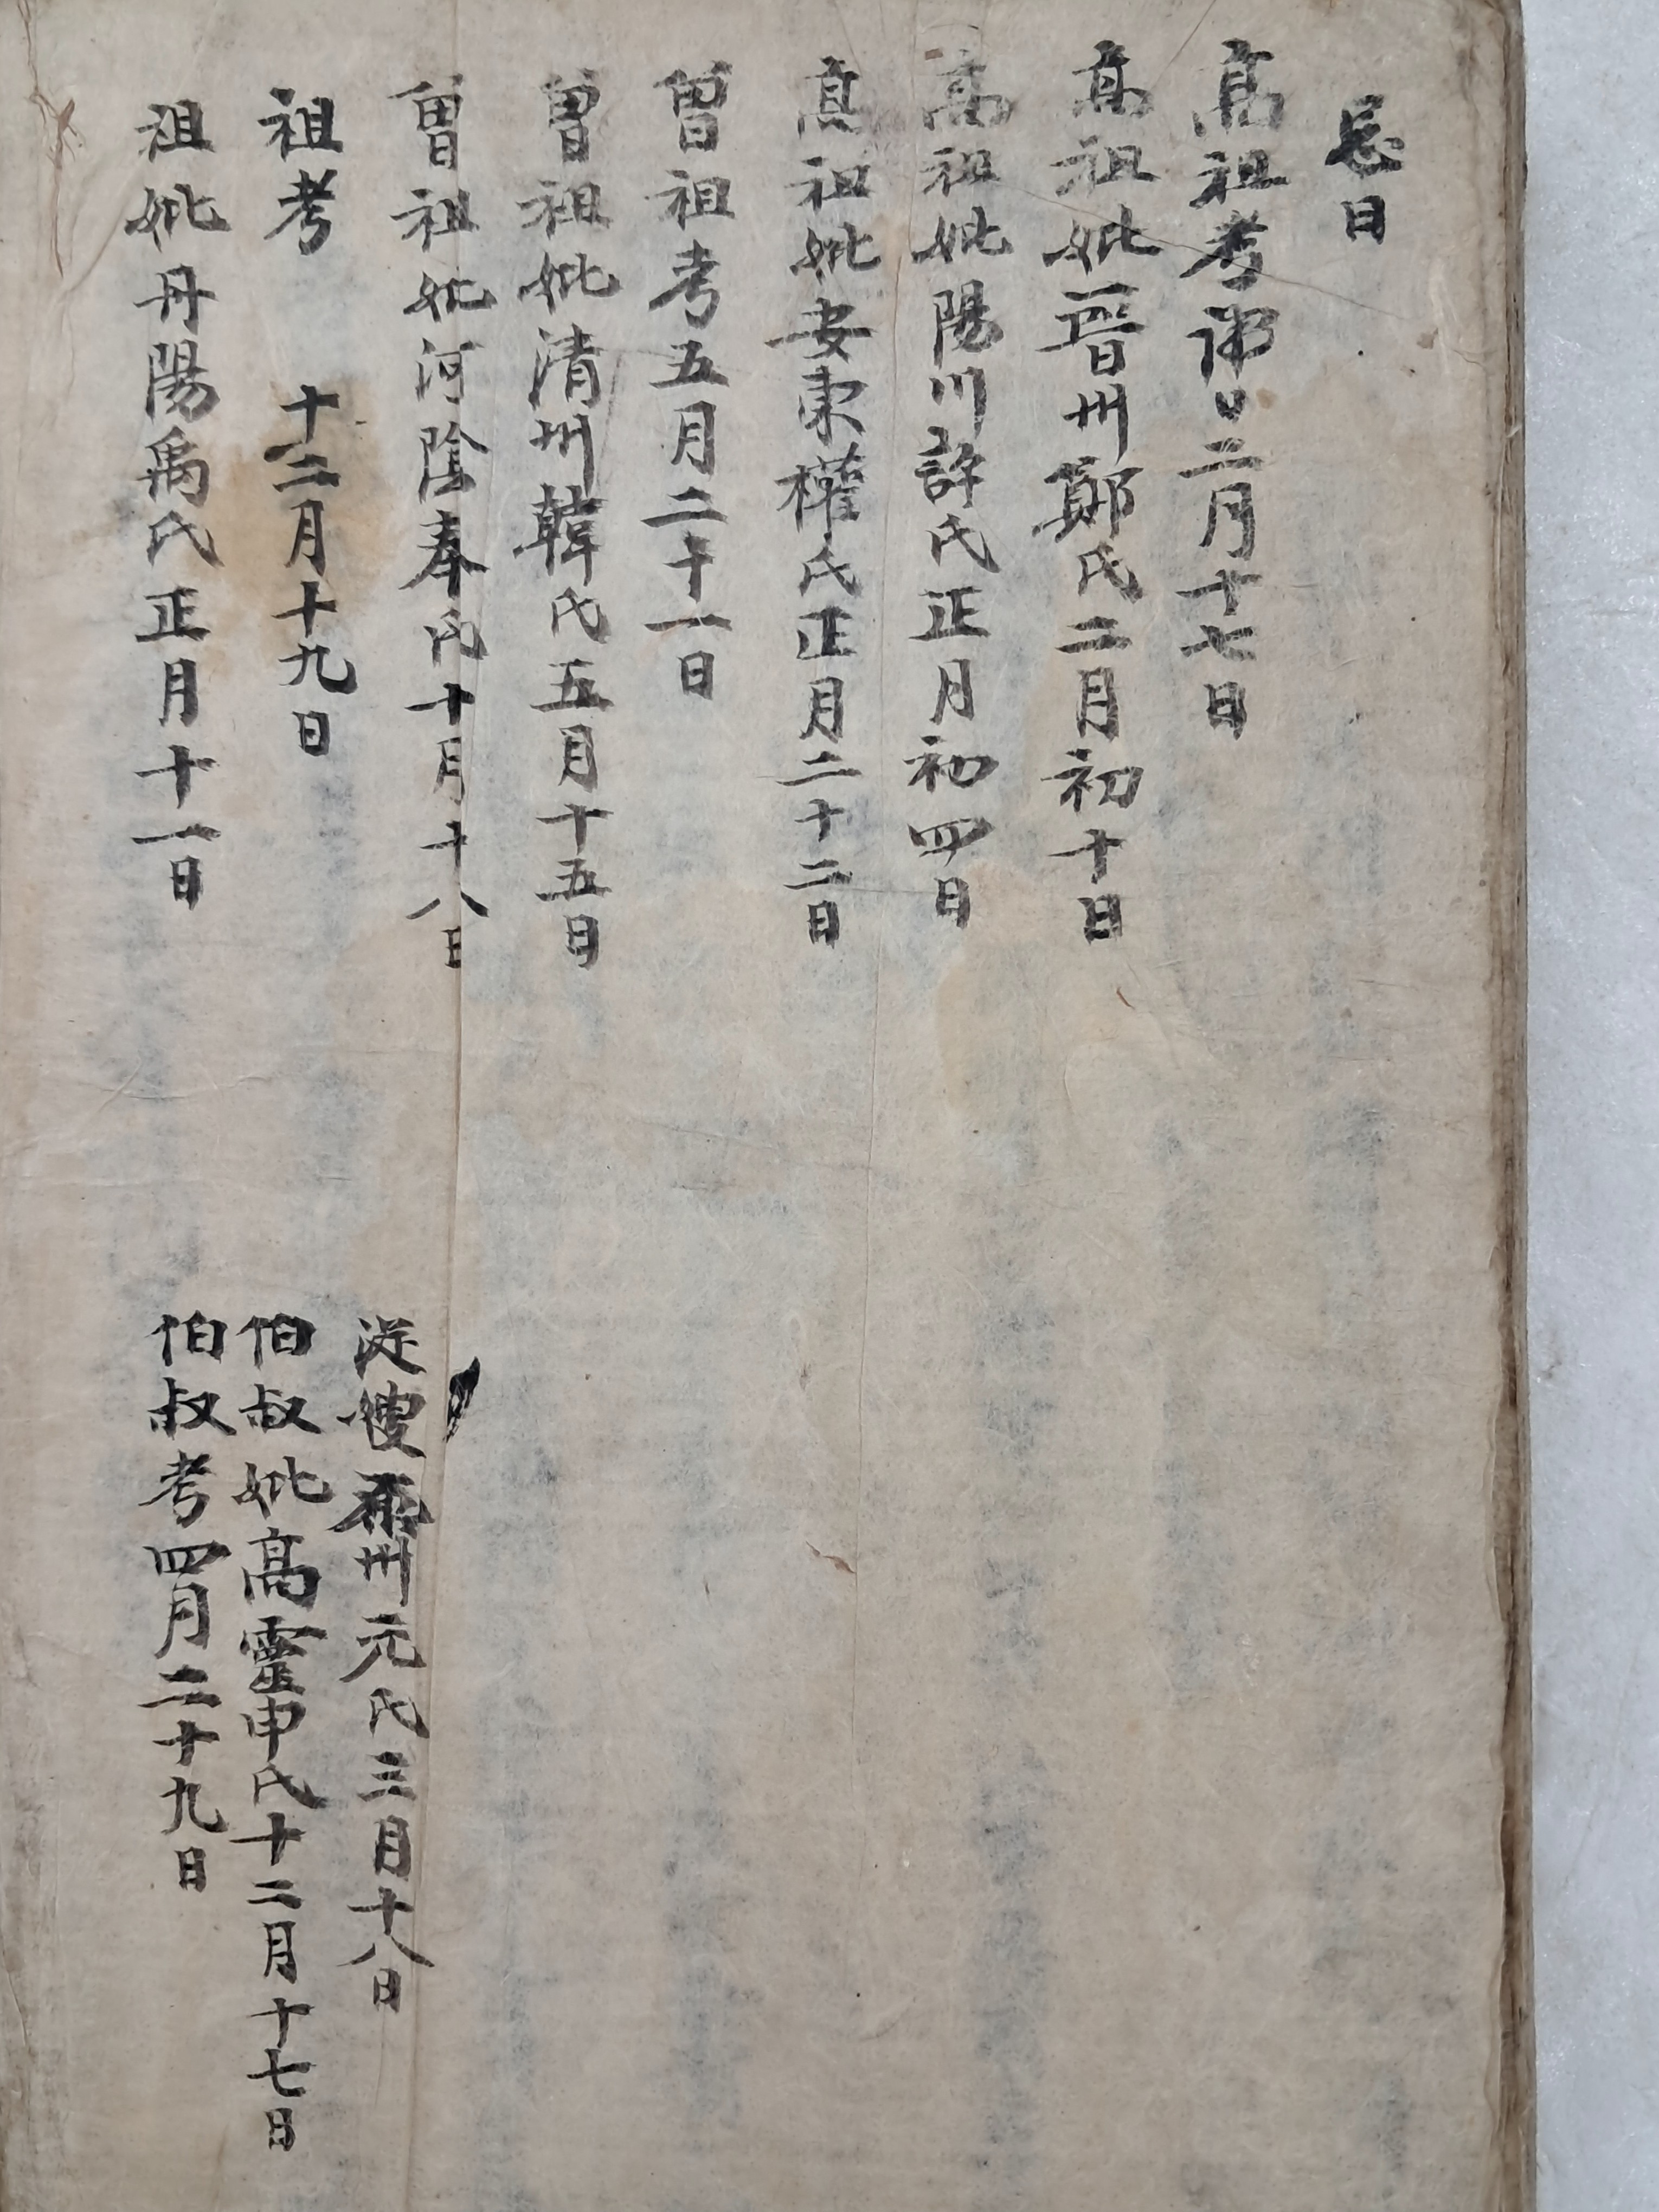 忌日
高祖考 二月十七日
高祖妣晉州鄭氏二月初十日
高祖妣陽川許氏正月初四日
高祖妣安東權氏正月二十二日
曾祖考五月二十一日
曾祖妣清州韓氏五月十五日
曾祖妣河陰奉氏十月十八日
祖考 十二月十九日
祖妣丹陽禹氏正月十一日
從嫂 州元氏三月十八日
伯叔妣高靈申氏十二月十七日
伯叔考四月二十九日